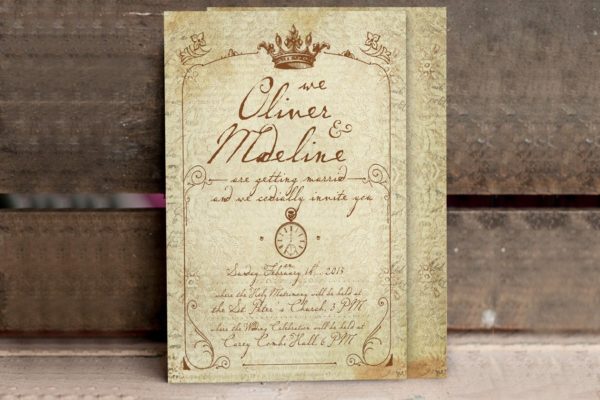 we
Oliver
&
Madeline
are getting married
and we cordially invite you
Sunday, February, 2013
where the Holy Matrimony will be held at
the St. Peter's Church, 3 PM
where the Celebration will be held at
Carey Combe Hall 6 PM